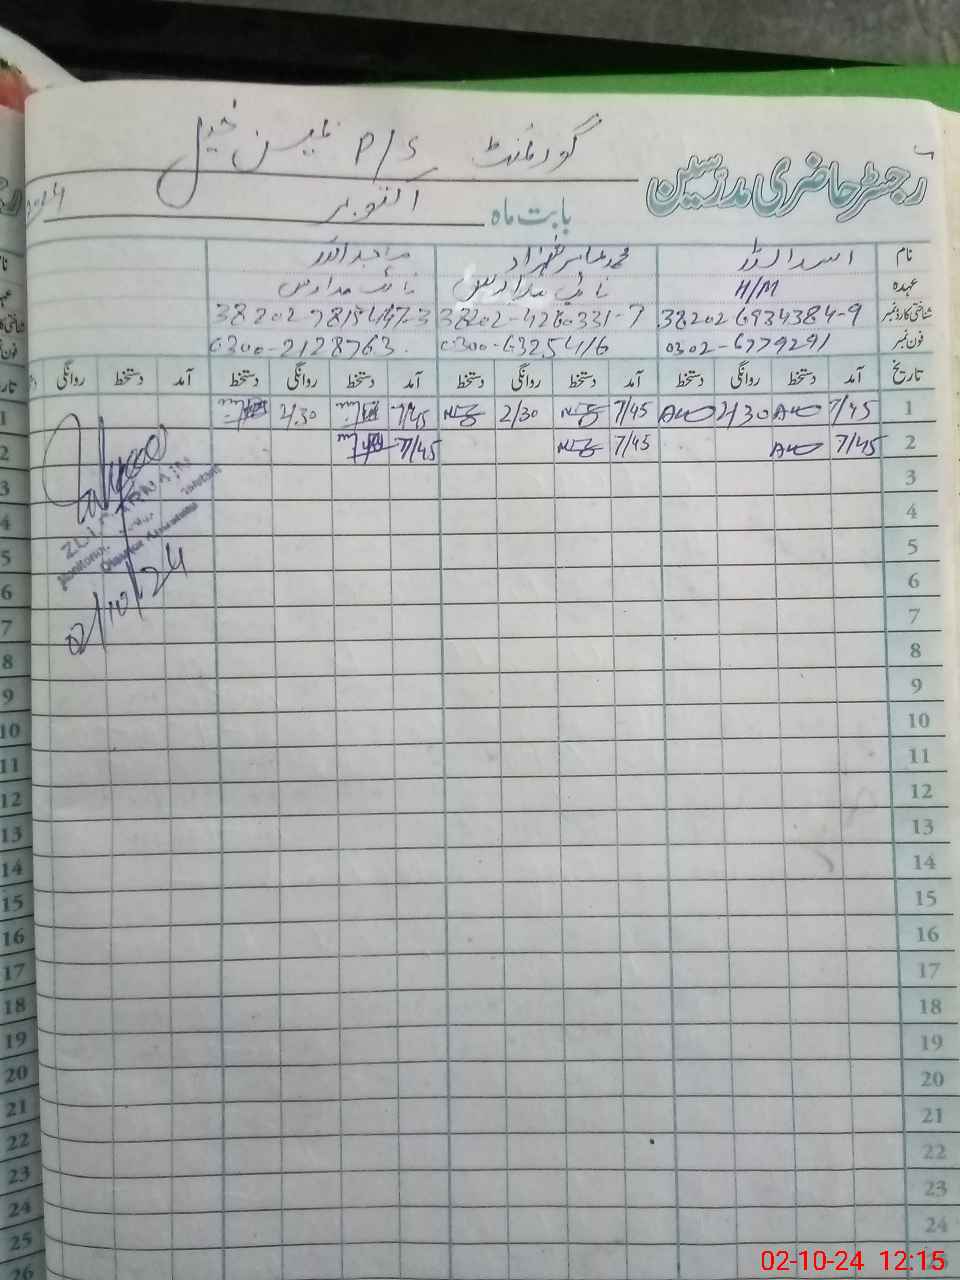 گورنمنٹ P/S خیل
رجسٹر حاضری مدرسین
بابت ماہ اکتوبر
نام اسد اللہ محمد عامر شہزاد ماجد اللہ
عہدہ H/M نائب مدارس نائب مدارس
شناختی کارڈ نمبر 38202 6934384-9 38202-4260331-7
فون نمبر 0302-6779291 0300-6325416 0300-2128763
تاریخ آمد دستخط روانگی دستخط آمد دستخط روانگی دستخط آمد دستخط روانگی دستخط آمد دستخط روانگی
1 7/45 2/30 7/45 2/30 7/45 2/30
2 7/45 7/45 7/45
3
4
ZULQARNAIN
5
6
02/10/24
7
8
9
10
11
12
13
14
15
16
17
18
19
20
21
22
23
24
02-10-24 12:15